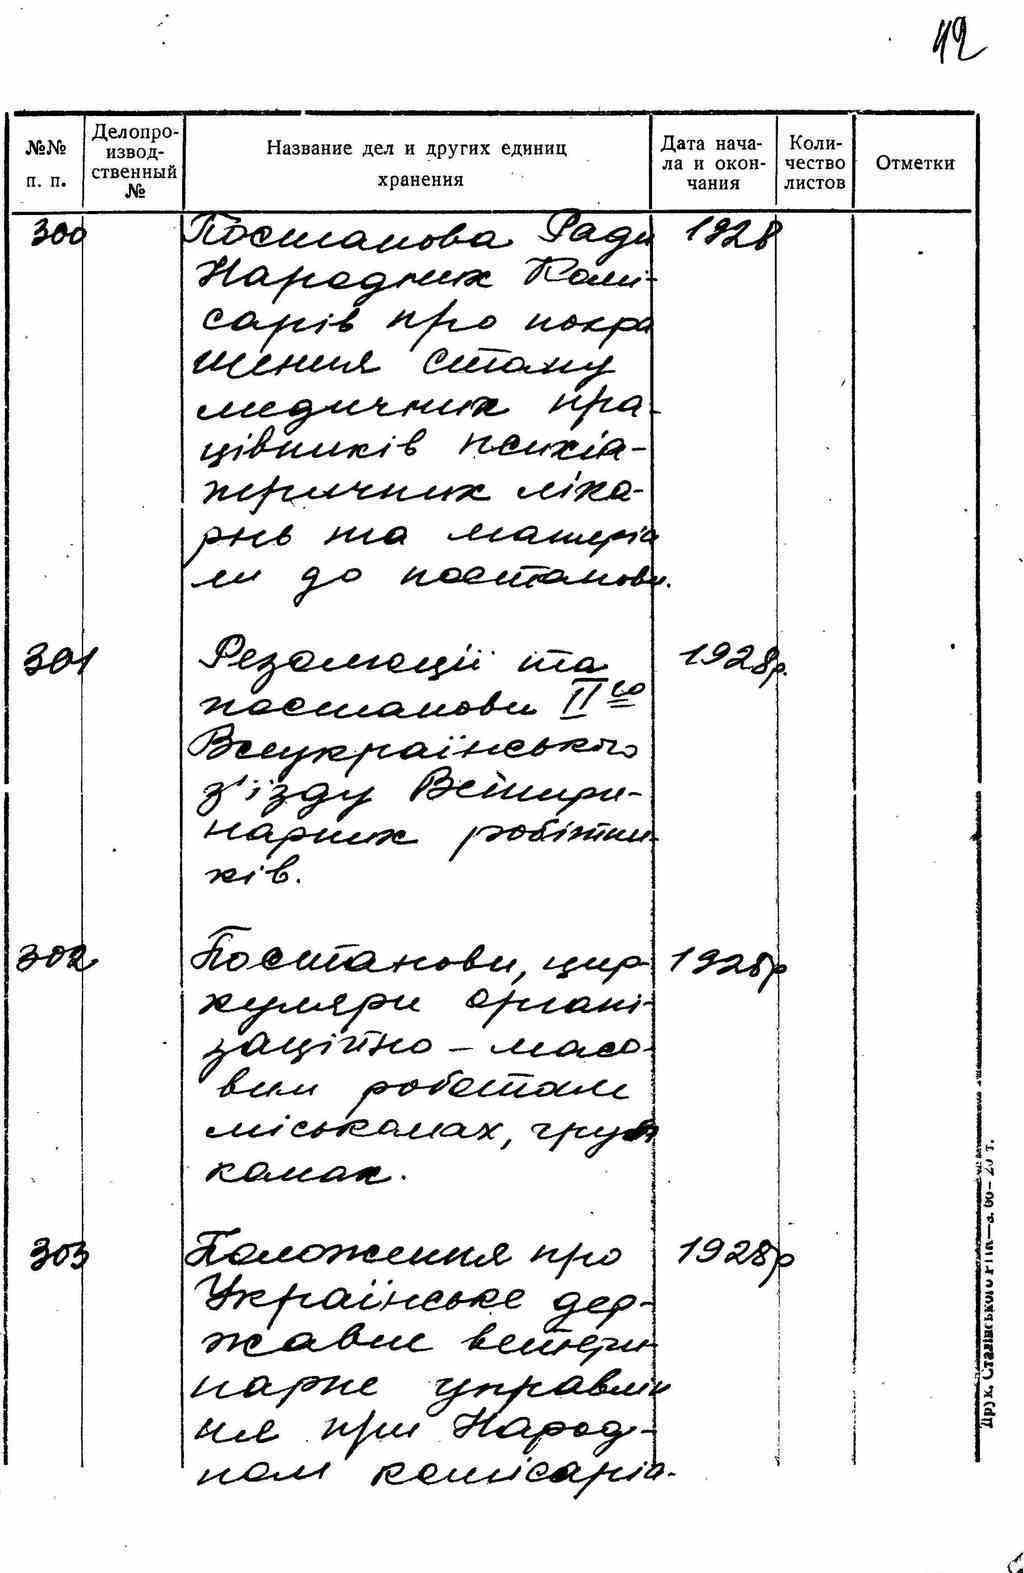 42
№№ п. п.
Делопро-
извод-
ственный
№
Название дел и других единиц
хранения
Дата нача-
ла и окон-
чания
Коли-
чество
листов
Отметки
300 Постанова Ради 1928
Народних Комі-
сарів про покра
щення стану
медичних пра-
цівників психіа-
тричних ліка-
рнь та матеріа
ли до постанови.
301 Резолюції та 1928р.
постанови II го
Всеукраїнського
з'їзду Ветири-
нарних робітни-
ків.
302 Постанови, цир- 1928р
куляри органі-
заційно-масо-
вим роботам
міськомах,
комах.
303 Положення про 1928р
Українське дер-
жавне ветери-
нарне управлін
ня при Народ-
ном комісаріа-
Друк. Сталінського